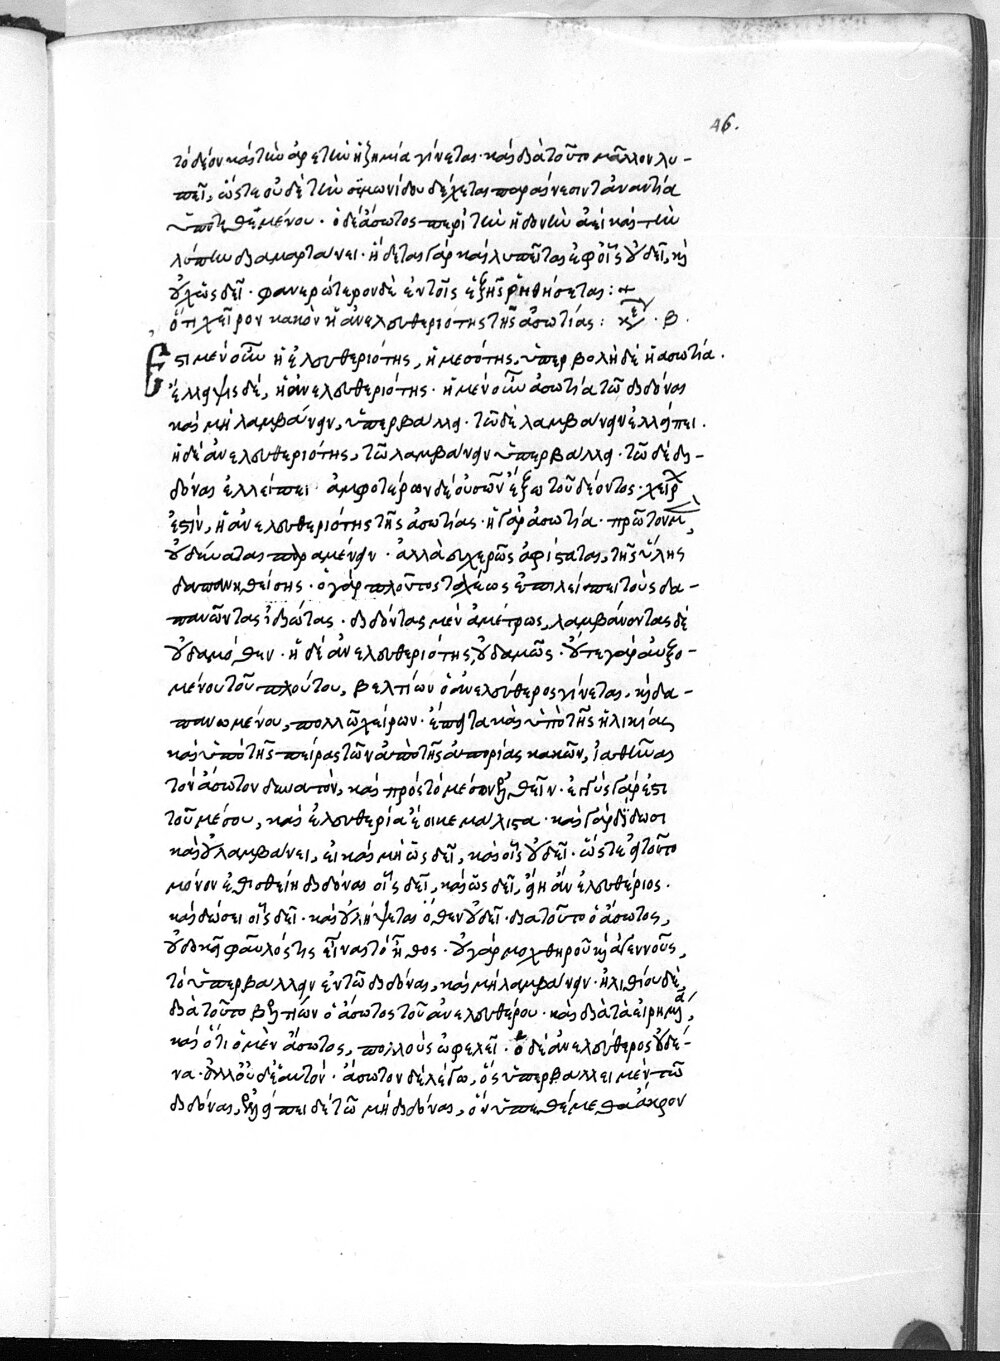 46.
τὸ δέον καὶ τὴν ἀρετὴν ἡ ζημία γίνεται· καὶ διὰ τοῦτο μᾶλλον λυ-
πεῖ, ὥστε οὐδὲ τὴν σιμωνίδου δέχεται παραίνεσιν τἀναντία
ὑποτιθεμένου· ὁ δὲ ἄσωτος περὶ τὴν ἡδονὴν ἀεὶ καὶ τὴν
λύπην διαμαρτάνει· ἥδεται γὰρ καὶ λυπεῖται ἐφ' οἷς οὐ δεῖ, καὶ
οὐχ ὡς δεῖ· φανερώτερον δὲ ἐν τοῖς ἑξῆς ῥηθήσεται:+
ὅτι χεῖρον κακὸν ἡ ἀνελευθεριότης τῆς ἀσωτίας: κεφ· β·
Ἔστι μὲν οὖν ἡ ἐλευθεριότης, ἡ μεσότης, ὑπερβολὴ δὲ ἡ ἀσωτία·
ἔλλειψις δέ, ἡ ἀνελευθεριότης· ἡ μὲν οὖν ἀσωτία τῷ διδόναι
καὶ μὴ λαμβάνειν, ὑπερβάλλει· τῷ δὲ λαμβάνειν ἐλλείπει·
ἡ δὲ ἀνελευθεριότης, τῷ λαμβάνειν ὑπερβάλλει· τῷ δὲ δι-
δόναι ἐλλείπει· ἀμφοτέρων δὲ οὐσῶν ἔξω τοῦ δέοντος· χεῖρον
ἐστίν, ἡ ἀνελευθεριότης τῆς ἀσωτίας· ἡ γὰρ ἀσωτία· πρῶτον μὲν,
οὐ δύναται παραμένειν· ἀλλὰ εὐχερῶς ἀφίσταται, τῆς ὕλης
δαπανηθείσης· ὁ γὰρ πλοῦτος ταχέως ἐπιλείπει τοὺς δα-
πανῶντας ἰδιώτας· διδόντας μὲν ἀμέτρως, λαμβάνοντας δὲ
οὐδαμόθεν· ἡ δὲ ἀνελευθεριότης, οὐδαμῶς· οὔτε γὰρ αὐξο-
μένου τοῦ πλούτου, βελτίων ὁ ἀνελεύθερος γίνεται, καὶ δα-
πανωμένου, πολλῷ χείρων· ἔπειτα καὶ ὑπὸ τῆς ἡλικίας
καὶ ὑπὸ τῆς πείρας τῶν ἀπὸ τῆς ἀπορίας κακῶν, ἰαθῆναι
τὸν ἄσωτον δυνατὸν, καὶ πρὸς τὸ μέσον ἐλθεῖν· ἐγγὺς γάρ ἐστι
τοῦ μέσου, καὶ ἐλευθερίᾳ ἔοικε μάλιστα· καὶ γὰρ δίδωσι
καὶ οὐ λαμβάνει, εἰ καὶ μὴ ὡς δεῖ, καὶ οἷς οὐ δεῖ· ὥστε εἰ τοῦτο
μόνον ἐθισθείη διδόναι οἷς δεῖ, καὶ ὡς δεῖ, εἴη ἂν ἐλευθέριος·
καὶ δώσει οἷς δεῖ· καὶ οὐ λήψεται ὅθεν οὐ δεῖ· διὰ τοῦτο ὁ ἄσωτος,
οὐ δοκεῖ φαῦλός τις εἶναι τὸ ἦθος· οὐ γὰρ μοχθηροῦ καὶ ἀγεννοῦς,
τὸ ὑπερβάλλειν ἐν τῷ διδόναι, καὶ μὴ λαμβάνειν· ἠλιθίου δέ,
διὰ τοῦτο βελτίων ὁ ἄσωτος τοῦ ἀνελευθέρου· καὶ διὰ τὰ εἰρημένα,
καὶ ὅτι ὁ μὲν ἄσωτος, πολλοὺς ὠφελεῖ· ὁ δὲ ἀνελεύθερος οὐδέ-
να· ἀλλ' οὐδὲ ἑαυτόν· ἄσωτον δὲ λέγω, ὃς ὑπερβάλλει μὲν τῷ
διδόναι, ἐλλείπει δὲ τῷ μὴ διδόναι, ὃν ὑπεθέμεθα ἄκρον